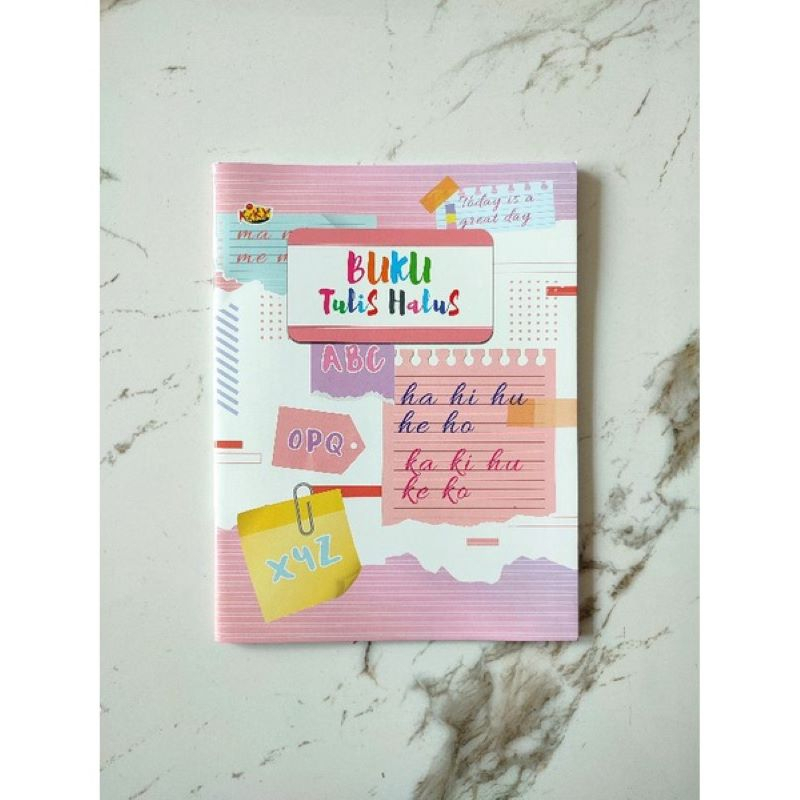 KIKY
Today is a
great day
ma
me
BUKU
Tulis Halus
ABC
ha hi hu
he ho
OPQ
ka ki hu
ke ko
XYZ